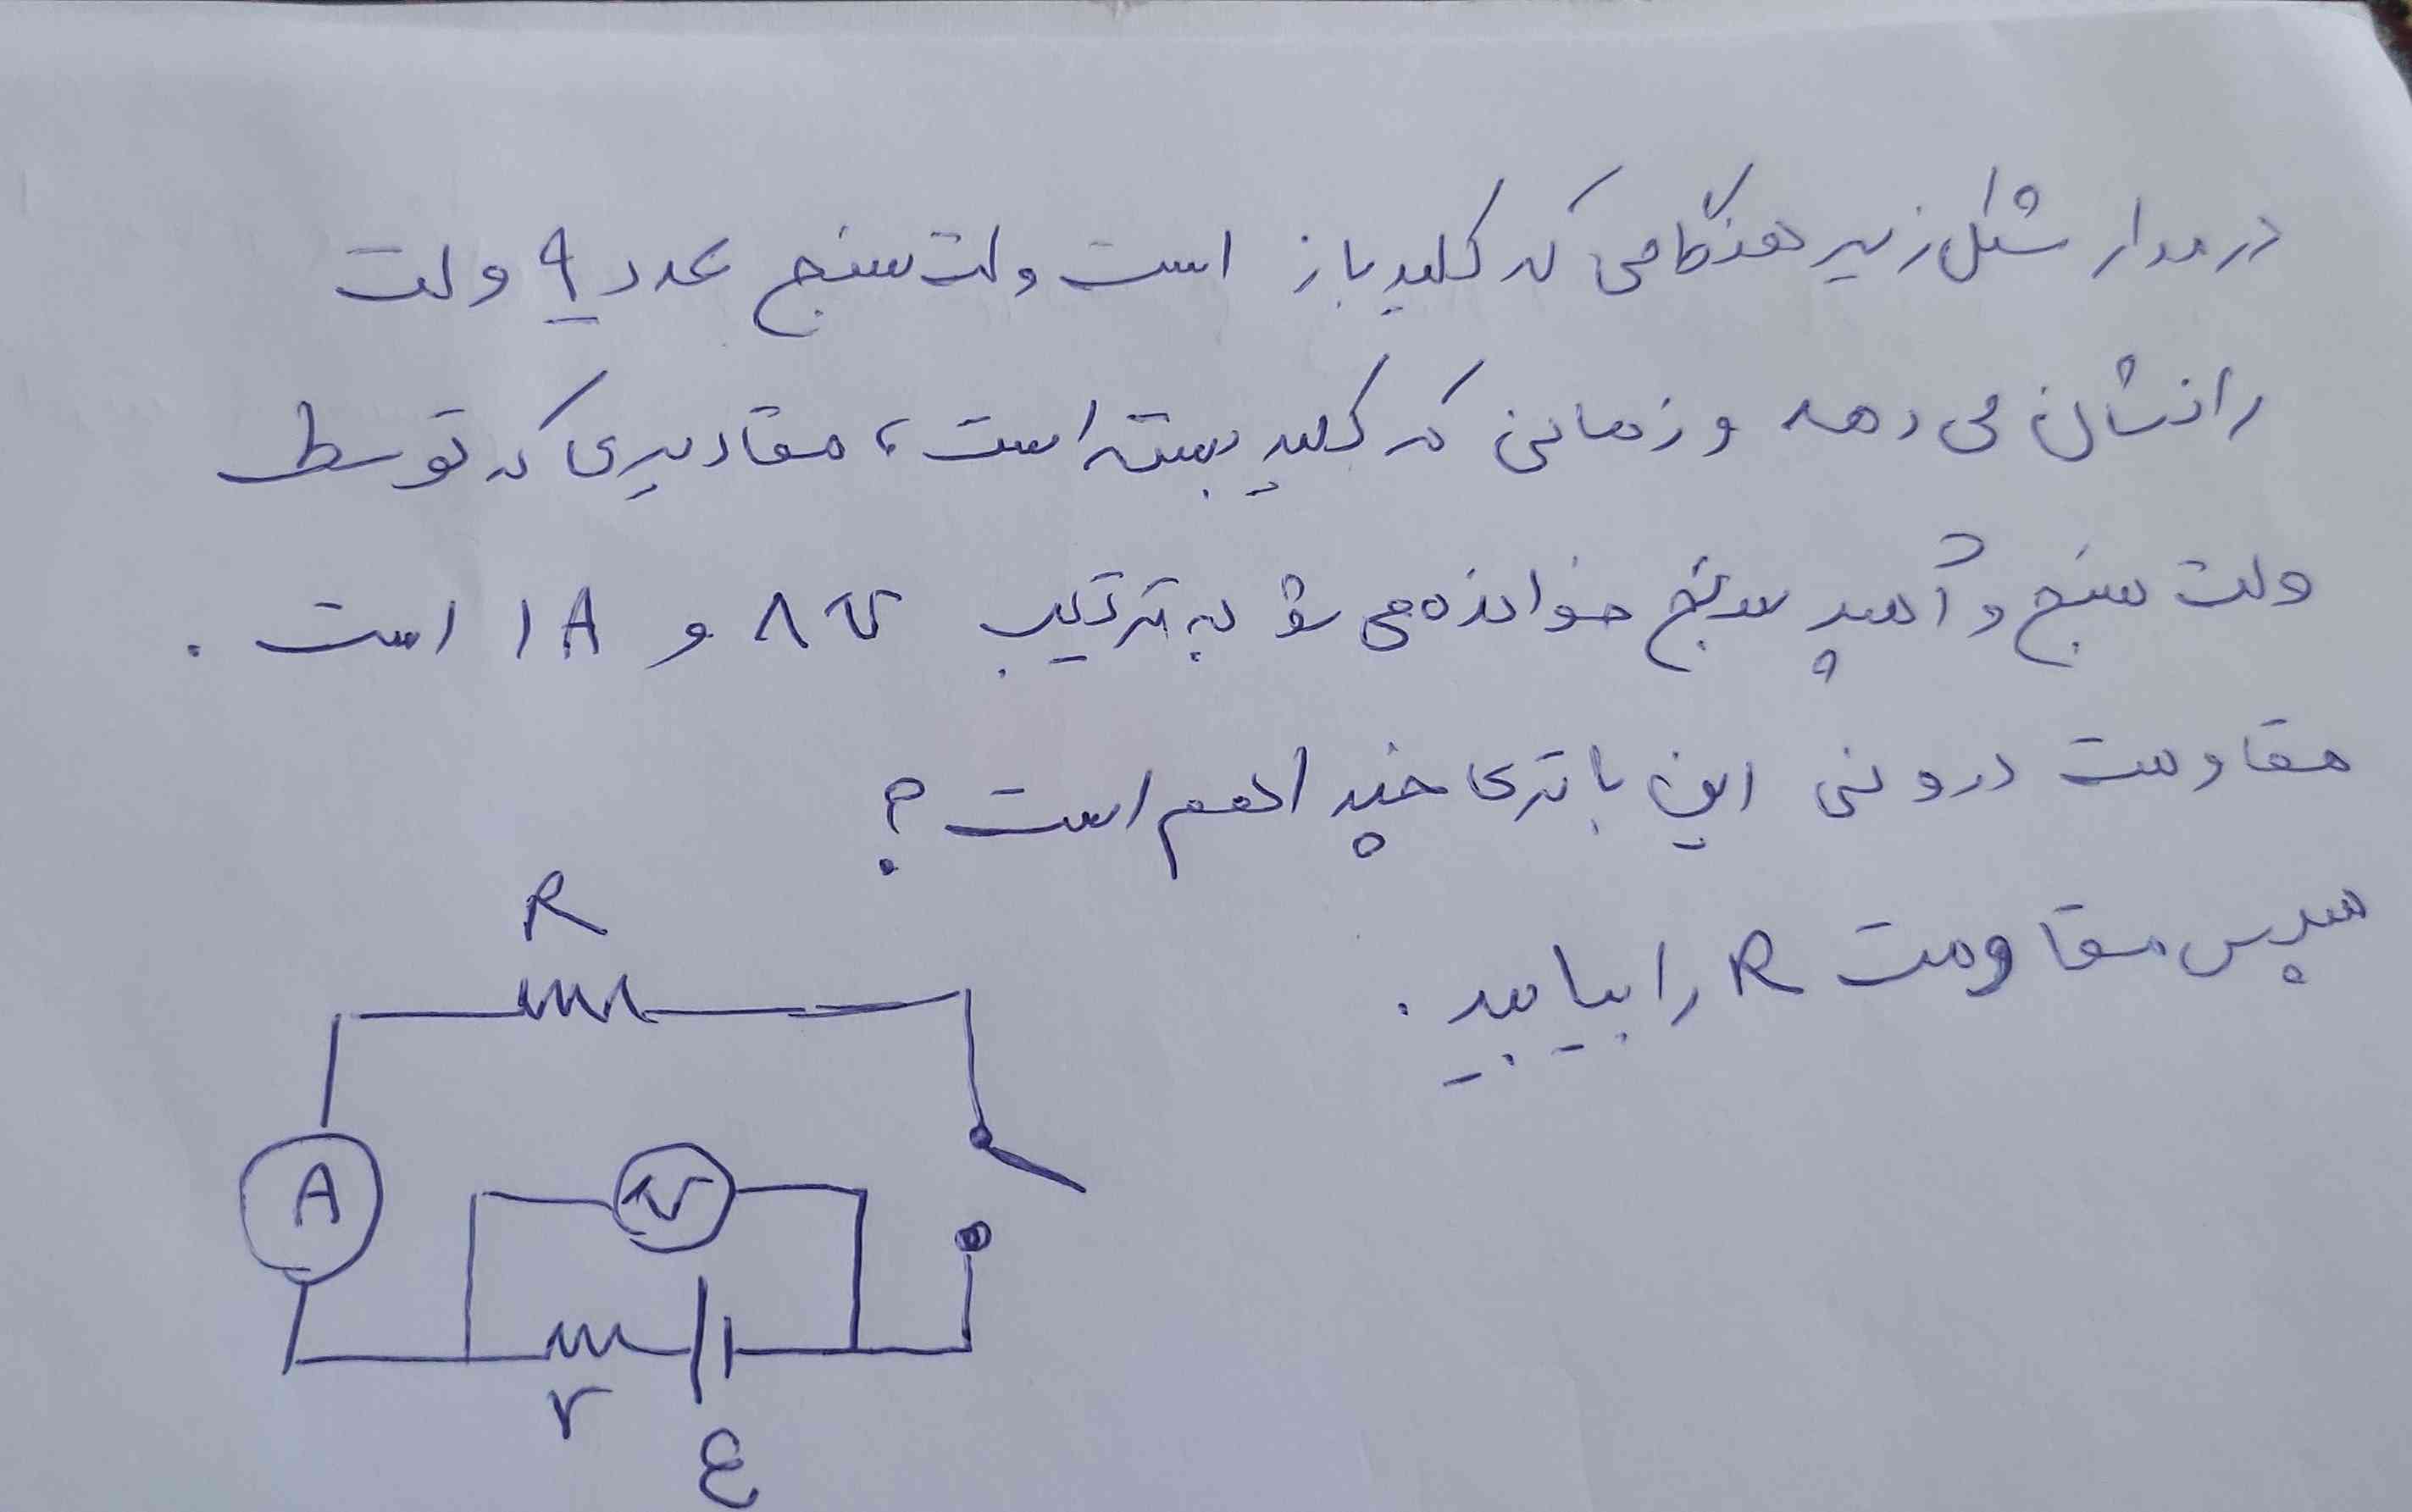 در مدار شکل زیر هنگامی که کلید باز است ولت سنج عدد ۹ ولت
را نشان می دهد و زمانی که کلید بسته است، مقادیری که توسط
ولت سنج و آمپر سنج خوانده می شو به ترتیب ۸ V و ۱ A است .
مقاومت درونی این باتری چند اهم است ؟
سپس مقاومت R را بیابید .
R
A
V
r
ε